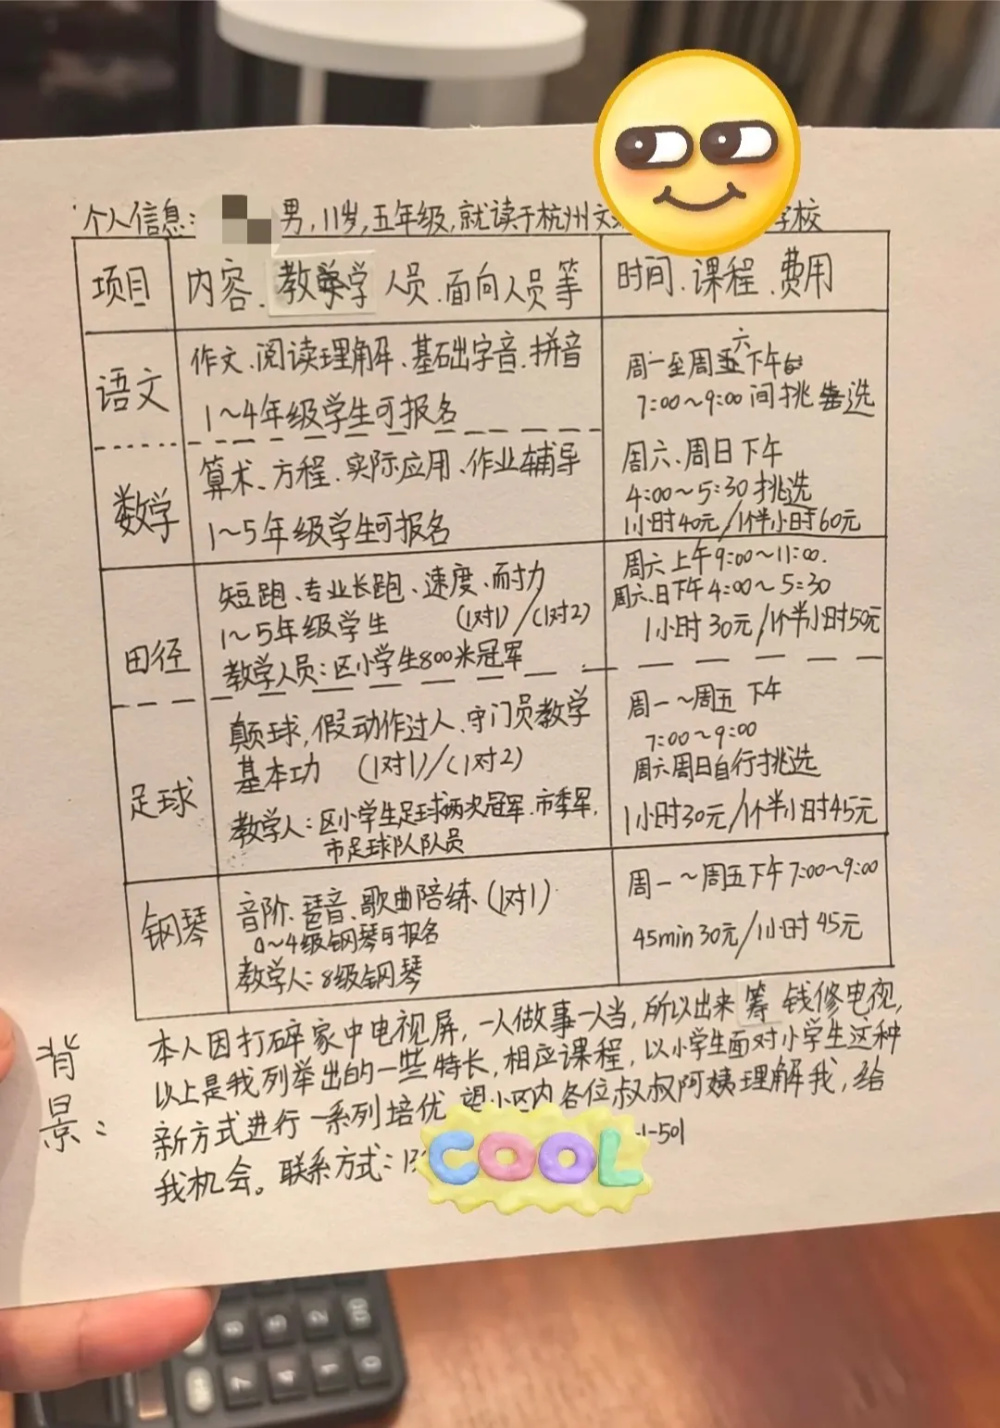 个人信息: 男,11岁,五年级,就读于杭州文 学校
项目
内容、教学 人员、面向人员等
时间、课程、费用
语文
作文、阅读理解、基础字音、拼音
1~4年级学生可报名
周一至周六下午
7:00~9:00间挑选
数学
算术、方程、实际应用、作业辅导
1~5年级学生可报名
周六、周日下午
4:00~5:30挑选
1小时40元/1个半小时60元
田径
短跑、专业长跑、速度、耐力
1~5年级学生 (1对1)/(1对2)
教学人员:区小学生800米冠军
周六上午9:00~11:00.
周六、日下午4:00~5:30
1小时30元/1个半小时50元
足球
颠球,假动作过人、守门员教学
基本功 (1对1)/(1对2)
教学人:区小学生足球两次冠军、市季军,
市足球队队员
周一~周五 下午
7:00~9:00
周六周日自行挑选
1小时30元/1个半小时45元
钢琴
音阶、琶音、歌曲陪练、(1对1)
0~4级钢琴可报名
教学人:8级钢琴
周一~周五下午7:00~9:00
45min 30元/1小时45元
背景:
本人因打碎家中电视屏,一人做事一人当,所以出来筹钱修电视,
以上是我列举出的一些特长,相应课程,以小学生面对小学生这种
新方式进行一系列培优,望小区内各位叔叔阿姨理解我,给
我机会。联系方式:13 -1-501
COOL